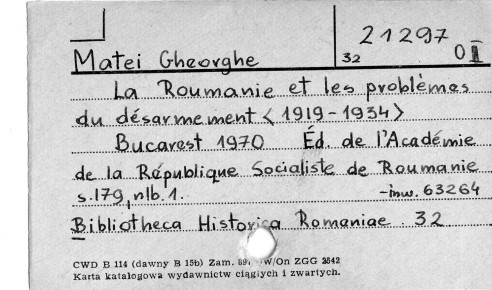 21297
Matei Gheorghe 32 O II
La Roumanie et les problèmes
du désarmement <1919-1934>
Bucarest 1970 Éd. de l'Académie
de la République Socialiste de Roumanie
s. 179, nlb. 1. -inw. 63264
Bibliotheca Historica Romaniae 32
CWD B 114 (dawny B 15b) Zam. W/On ZGG 3542
Karta katalogowa wydawnictw ciągłych i zwartych.